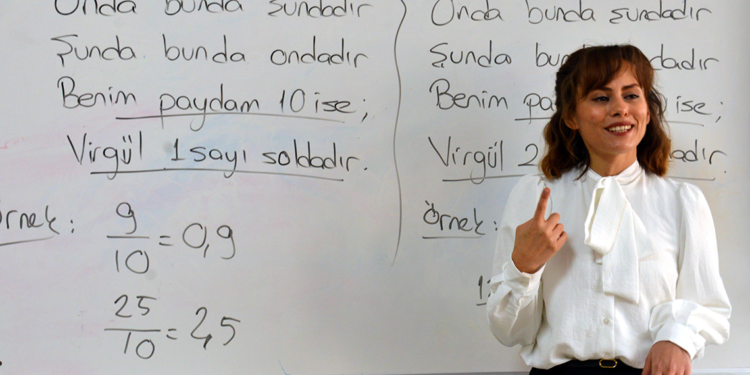 Onda bunda şundadır
Şunda bunda ondadır
Benim paydam 10 ise;
Virgül 1 sayı soldadır.
9/10 = 0,9
25/10 = 2,5
Onda bunda şundadır
Şunda
Benim
ise;
Virgül 2
Örnek: